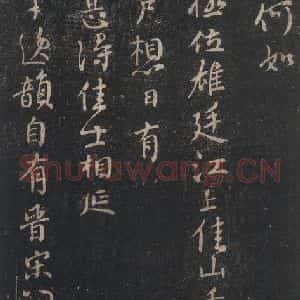 何如
極位雄廷江上佳山
户想日有
甚得佳士相延
逸韻自有晋宋
Shufawang.CN